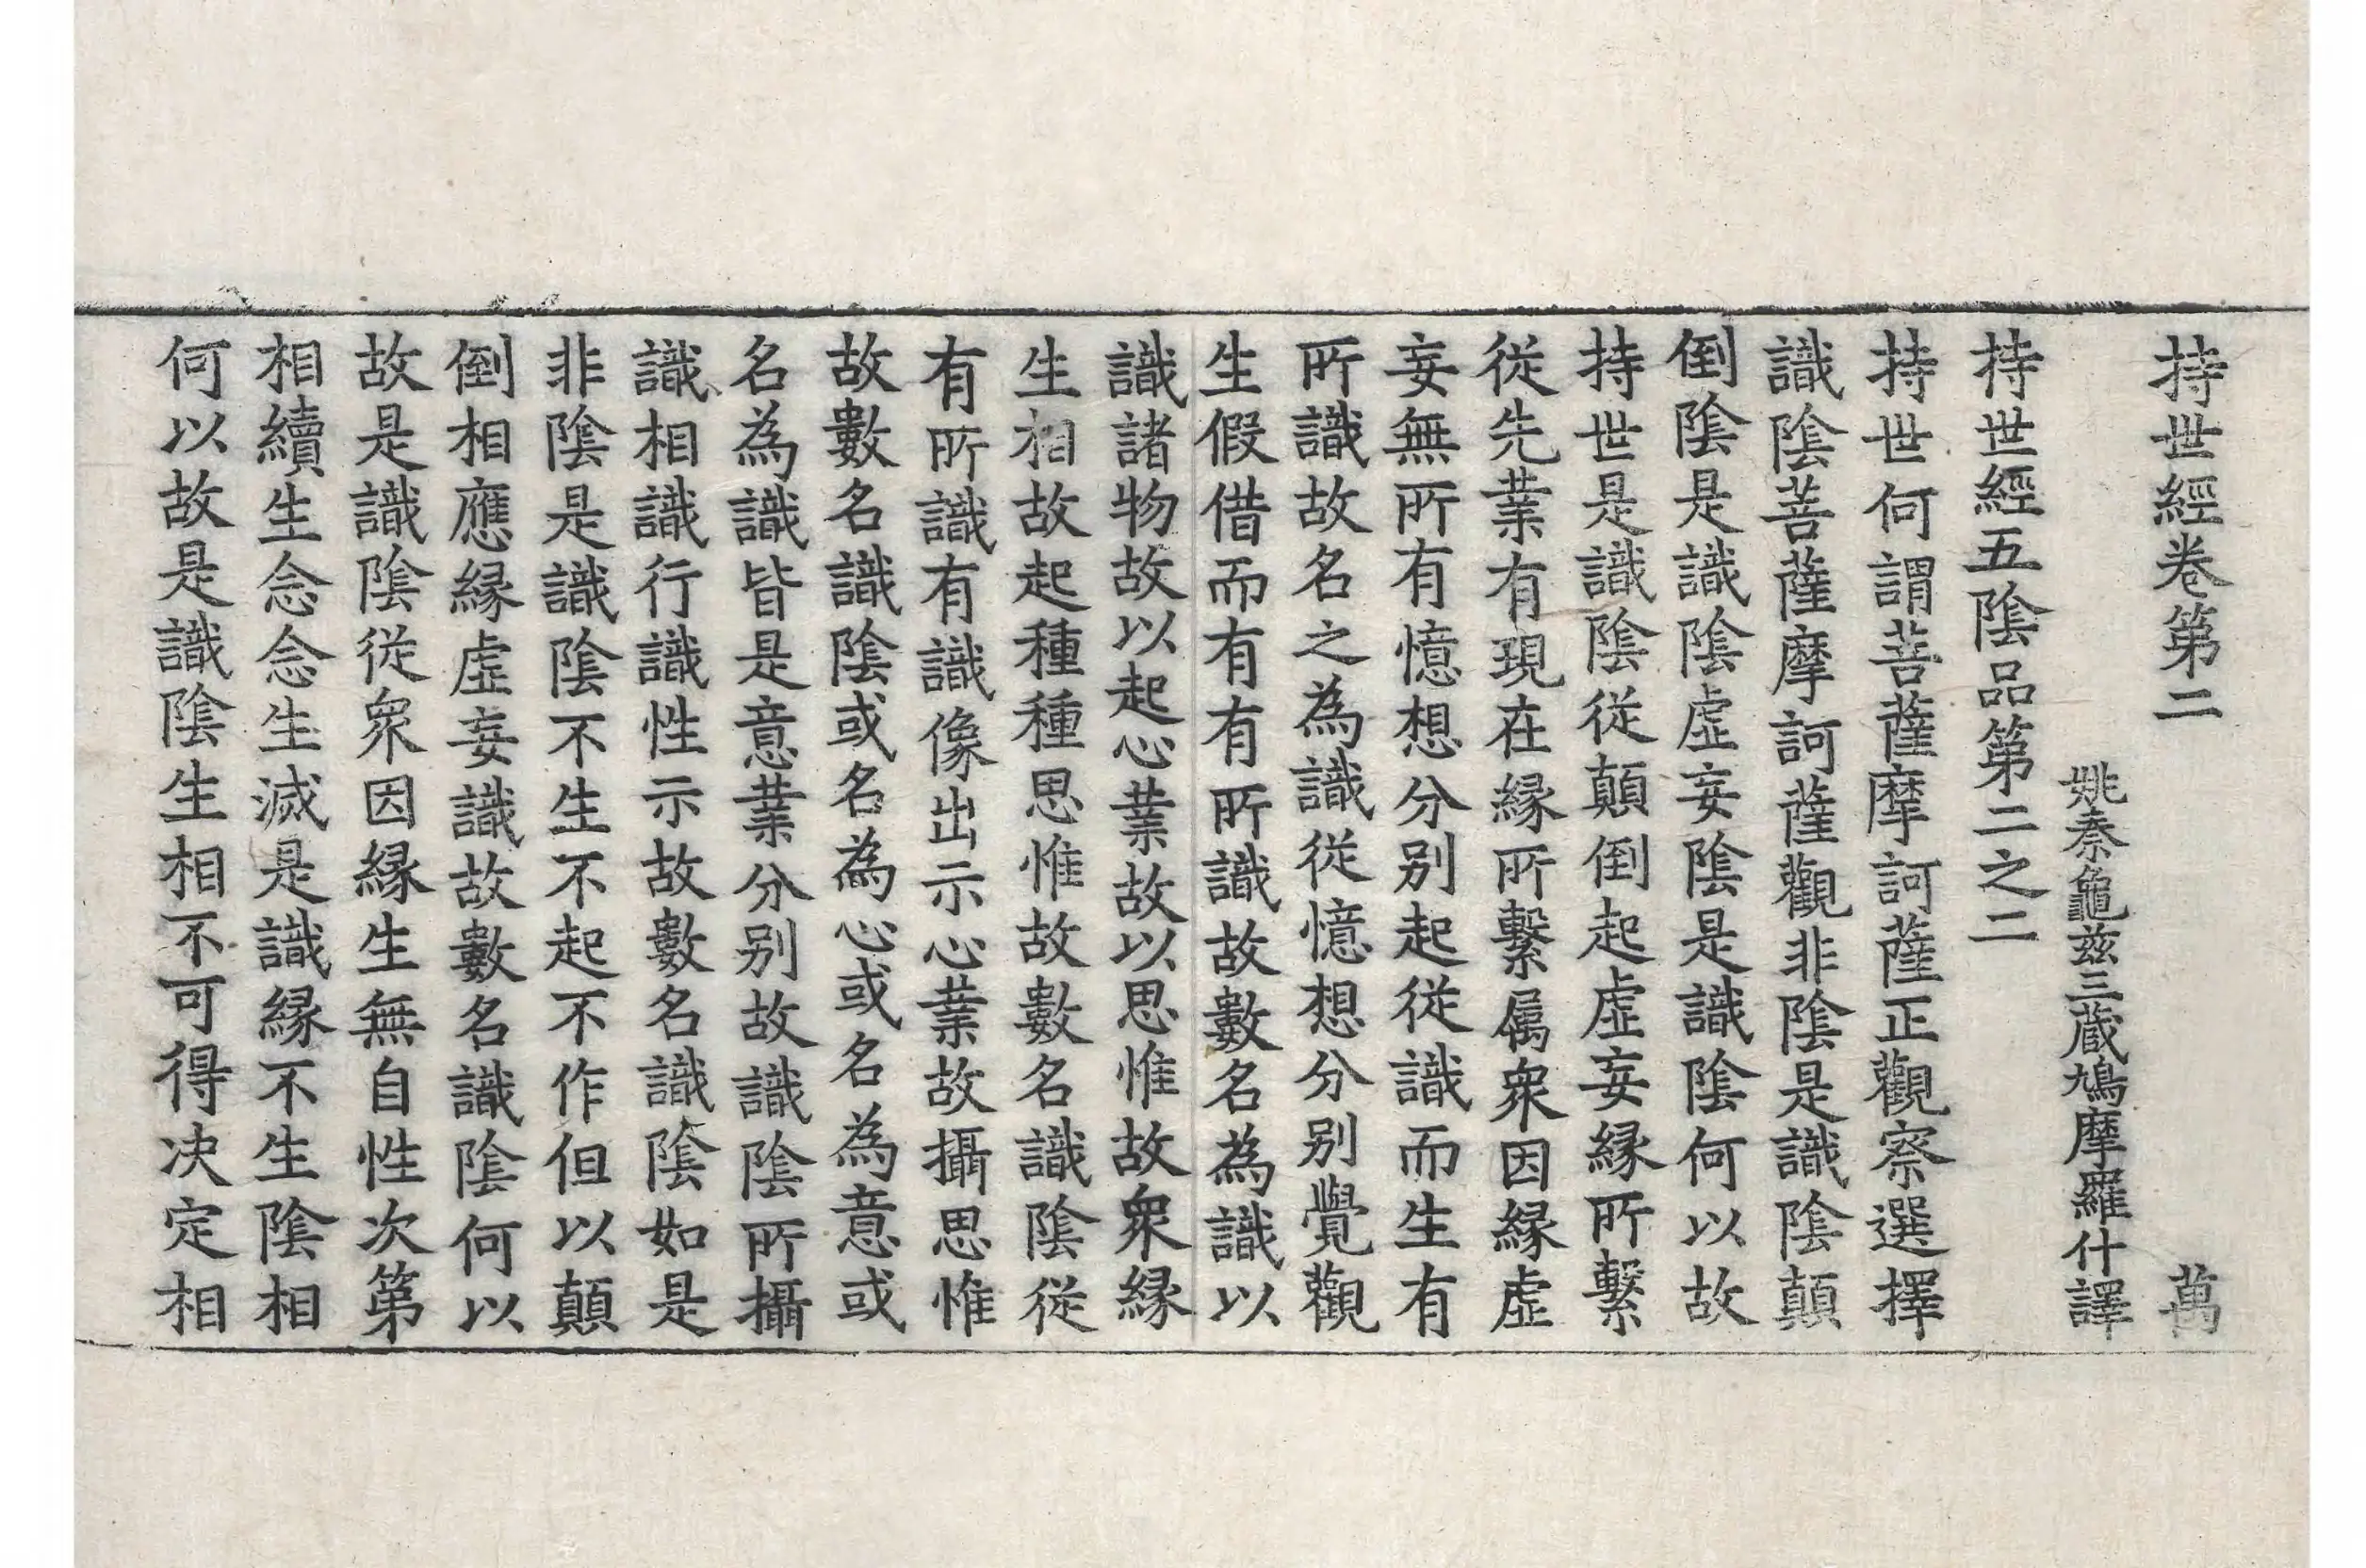 持世經卷第二 萬
姚秦龜茲三蔵鳩摩羅什譯
持世經五隂品第二之二
持世何謂菩薩摩訶薩正觀察選擇
識隂菩薩摩訶薩觀非隂是識隂顛
倒隂是識隂虛妄隂是識隂何以故
持世是識隂從顛倒起虛妄縁所繫
從先業有現在縁所繫屬衆因縁虛
妄無所有憶想分别起從識而生有
所識故名之為識從憶想分别覺觀
生假借而有有所識故數名為識以
識諸物故以起心業故以思惟故衆縁
生相故起種種思惟故數名識隂從
有所識有識像出示心業故攝思惟
故數名識隂或名為心或名為意或
名為識皆是意業分别故識隂所攝
識相識行識性示故數名識隂如是
非隂是識隂不生不起不作但以顛
倒相應縁虛妄識故數名識隂何以
故是識隂從衆因縁生無自性次第
相續生念念生滅是識縁不生隂相
何以故是識隂生相不可得决定相